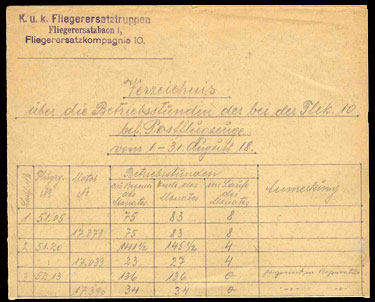 K. u. k. Fliegerersatztruppen
Fliegerersatzbaon I,
Fliegerersatzkompagnie 10.
Verzeichnis
über die Betriebsstunden der bei der Flik. 10
bef. Postflugzeuge
vom 1-31. August 18.
Betriebsstunden
Motor zu Beginn des Monates Ende des Monates im Laufe des Monates Anmerkung
1. 51.05 75 83 8
75 83 8
2. 141½ 145½ 4
17.033 23 27 4
3. 52.13 136 136 0
34 34 0